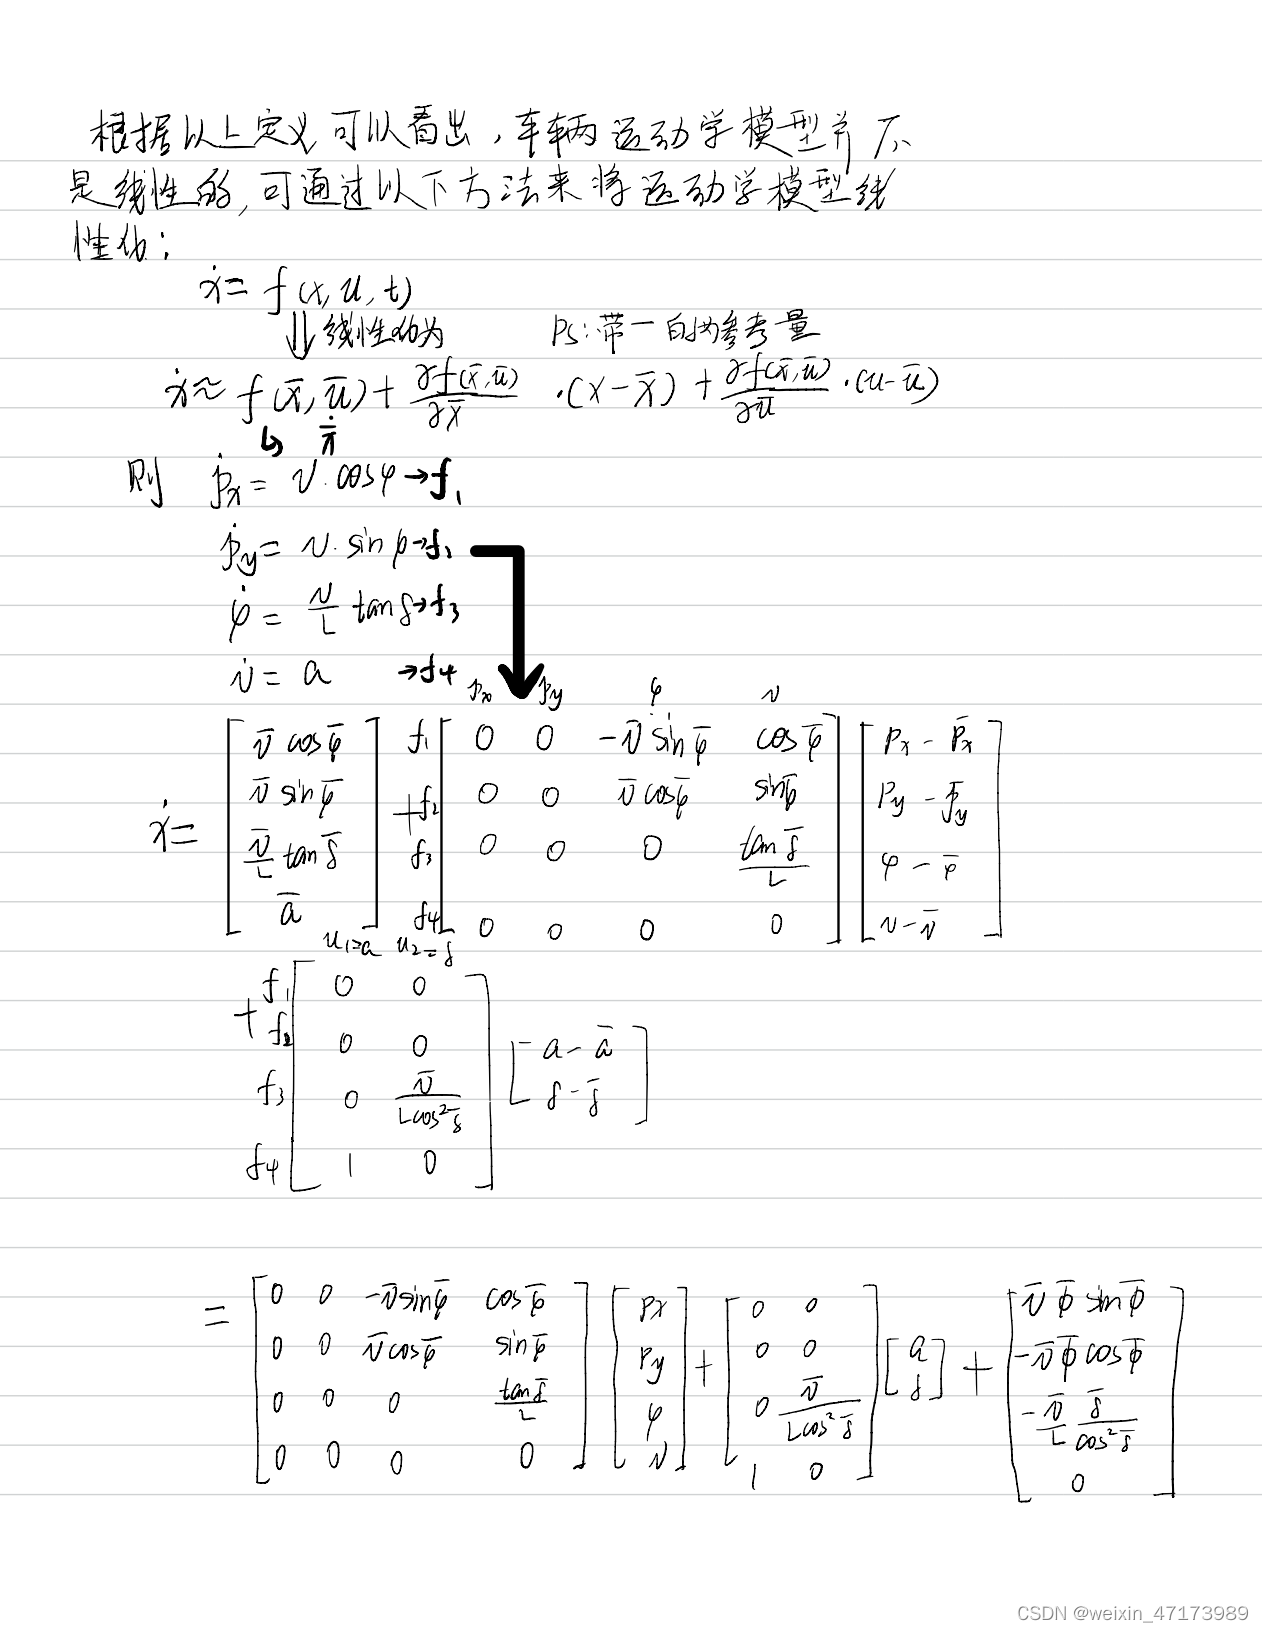 根据以上定义可以看出，车辆运动学模型并不
是线性的，可通过以下方法来将运动学模型线
性化：
ẋ = f(x, u, t)
⇓ 线性化为 Ps：带一的为参考量
ẋ ≈ f(x̄, ū) + ∂f(x̄,ū)/∂x̄ ·(x-x̄) + ∂f(x̄,ū)/∂ū ·(u-ū)
↳ ẋ̄
则 ṗx = v·cosφ → f₁
ṗy = v·sinφ → f₂
φ̇ = v/L tanδ → f₃
v̇ = a → f₄
px py φ v
ẋ = [v̄cosφ̄; v̄sinφ̄; v̄/L tanδ̄; ā] + f₁ f₂ f₃ f₄ [0 0 -v̄sinφ̄ cosφ̄; 0 0 v̄cosφ̄ sinφ̄; 0 0 0 tanδ̄/L; 0 0 0 0] [px - p̄x; py - p̄y; φ - φ̄; v - v̄]
u₁=a u₂=δ
+ f₁ f₂ f₃ f₄ [0 0; 0 0; 0 v̄/(Lcos²δ̄); 1 0] [a - ā; δ - δ̄]
= [0 0 -v̄sinφ̄ cosφ̄; 0 0 v̄cosφ̄ sinφ̄; 0 0 0 tanδ̄/L; 0 0 0 0] [px; py; φ; v] + [0 0; 0 0; 0 v̄/(Lcos²δ̄); 1 0] [a; δ] + [v̄φ̄sinφ̄; -v̄φ̄cosφ̄; -v̄/L δ̄/cos²δ̄; 0]
CSDN @weixin_47173989